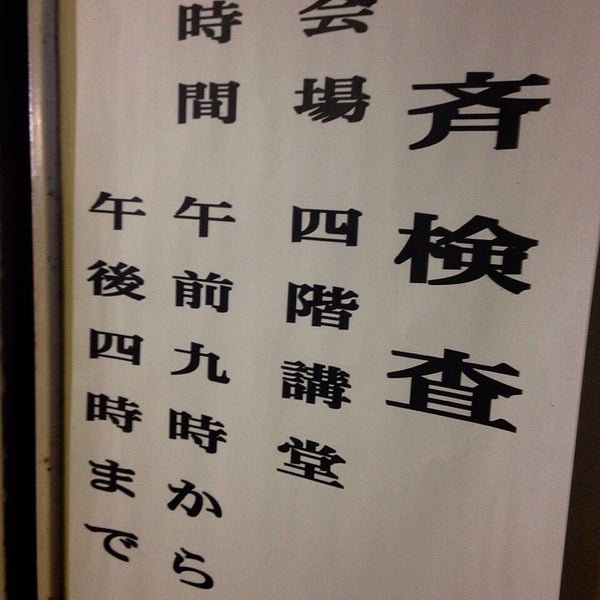 斉検査
会場 四階講堂
時間 午前九時から
午後四時まで